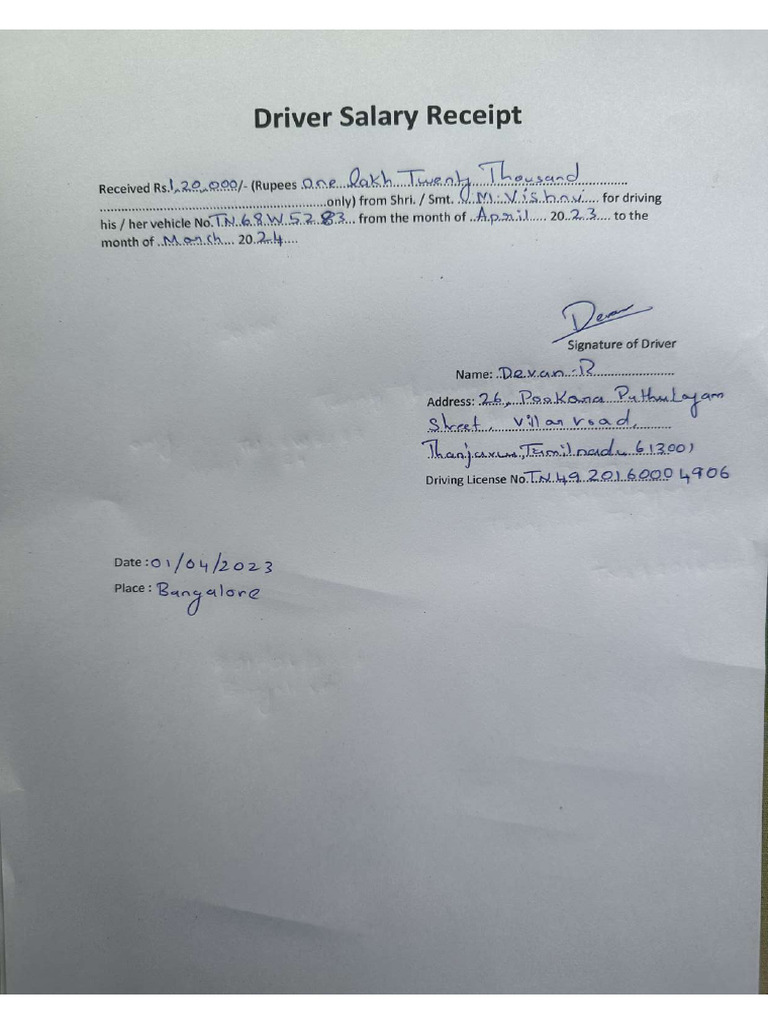 Driver Salary Receipt
Received Rs.1,20,000/- (Rupees One lakh Twenty Thousand
only) from Shri. / Smt. M. Vishnu for driving
his / her vehicle No. TN 68 W 5283 from the month of April 2023 to the
month of March 2024
Signature of Driver
Name: Devan R
Address: 26, Pookara Puthu
Street, Villar road,
Thanjavur, Tamilnadu 613001
Driving License No. TN 49 20160004906
Date : 01/04/2023
Place : Bangalore